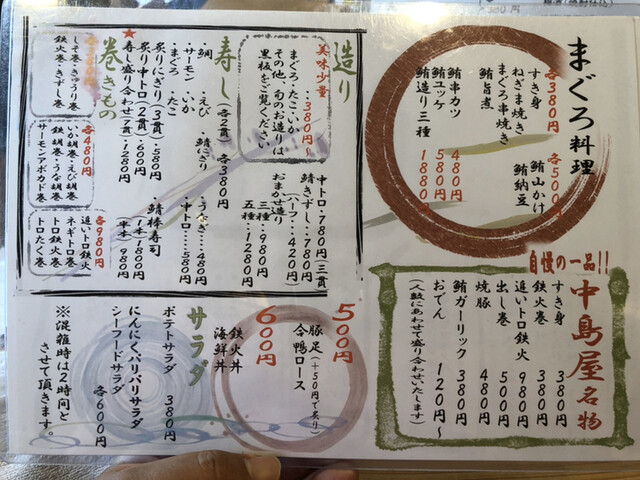 まぐろ料理
各380円
すき身
ねぎま焼き
まぐろ串焼き
鮪旨煮
各500円
鮪山かけ
鮪納豆
鮪串カツ 480円
鮪ユッケ 580円
鮪造り三種 1880円
自慢の一品!!
中島屋名物
すき身 380円
鉄火巻 380円
追いトロ鉄火 980円
出し巻 380円
焼豚 480円
鮪ガーリック 580円
おでん 120円~
(人数にあわせて盛り合わせいたします)
造り
美味少量 380円
まぐろ・たこ・いか
その他、旬のお造りは
黒板をご覧ください
中トロ・780円(三貫)
鯖きずし・780円
(ハーフ・420円)
おまかせ造り
三種・980円
五種・1280円
寿し(各2貫)
各380円
・鯛 ・えび ・鯖にぎり
・サーモン ・いか
・まぐろ ・たこ
・うなぎ・480円
・中トロ・580円
炙りにぎり(3貫)・600円
炙り中トロ(2貫)・680円
★寿し盛り合わせ(二貫)・1280円
・鯖棒寿司
1本1800円
半本980円
巻きもの
しそ巻・きゅうり巻
鉄火巻・きずし巻
各480円
いか胡巻・えび胡巻
鉄胡巻・うな胡巻
サーモンアボカド巻
各980円
追いトロ鉄火
ネギトロ巻
トロ鉄火巻
トロたく巻
500円
豚足(+50円で炙り)
合鴨ロース
600円
鉄火丼
海鮮丼
サラダ
ポテトサラダ 380円
にんにくパリパリサラダ
シーフードサラダ
各600円
※混雑時は2時間と
させて頂きます。